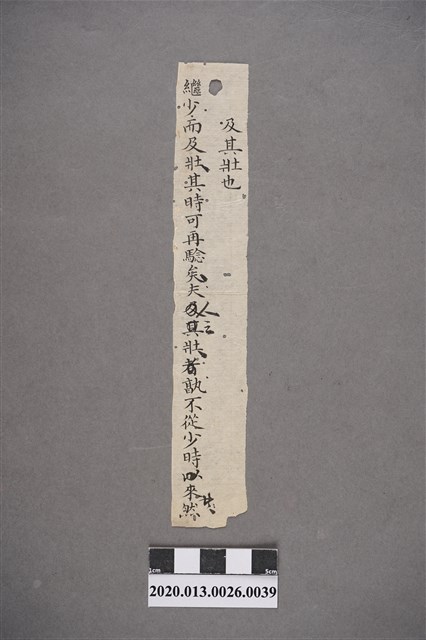 及其壯也
繼少而及壯其時可再驗矣夫人之及其壯者孰不從少時以來然
1cm
5cm
2020.013.0026.0039